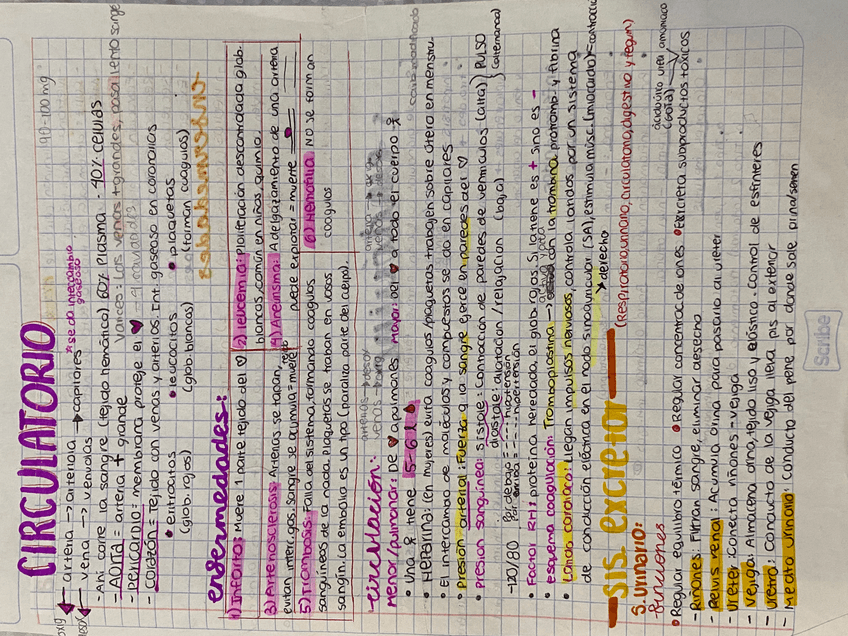 CIRCULATORIO
90-100 mg
oxig ← arteria → arteriola → capilares *se da intercambio gaseoso
desox ← vena → venulas
- Ahí corre la sangre (tejido hemático) 60% plasma - 40% células
Varices: Las venas + grandes, pasa lento sangre
- AORTA = arteria + grande
- pericardio = membrana protege el ♥
- corazón = Tejido con venas y arterias. Int. gaseoso en coronarios
• eritrocitos (glob. rojos)
• leucocitos (glob. blancos)
• plaquetas (forman coágulos)
enfermedades:
1) Infarto: Muere 1 parte tejido del ♡
2) Leucemia: proliferación descontrolada glob. blancos, común en niños, quimio.
3) Arterosclerosis: Arterias se tapan, evitan interc. gas. Sangre se acumula = muere tejido
4) Aneurisma: Adelgazamiento de una arteria puede explotar = muerte
5) Trombosis: Falla del sistema, formando coágulos sanguíneos de la nada, plaquetas se traban en vasos sangín. La embolia es un tipo (paraliza parte del cuerpo).
6) Hemofilia: NO se forman coágulos
- circulación:
menor/pulmonar: De ♥ a pulmones
Mayor: Del ♥ a todo el cuerpo
• Una ♀ tiene 5-6 L
• Heparina: (en mujeres) evita coágulos/plaquetas trabajen sobre útero en menstru.
• El intercambio de moléculas y compuestos se da en capilares
• Presión arterial: Fuerza q la sangre ejerce en paredes del ♡
• Presión sanguínea: sistole: contracción de paredes de ventrículos (alta)
diástole: dilatación / relajación (baja)
PULSO
-120/80
Por debajo = --- hipotensión
Por encima = --- hipertensión
• Factor RH: proteína heredada el glob. rojos. Si la tiene es + sino es -
• Esquema coagulación: Tromboplastina → con la trombina, protromb. y fibrina
• Latido cardíaco: llegan impulsos nerviosos, controla latidos por un sistema de conducción eléctrica en el nodo sinoauricular (SA), estimula músc. (miocardio) = contracción
→ derecho
SIS. excretor
(Respiratorio, urinario, circulatorio, digestivo y tegum)
S. Urinario:
Funciones
• Regular equilibrio térmico • Regular concentrac de iones • Excreta subproductos tóxicos
ácido úrico (gota) urea amoniaco
- Riñones: Filtran sangre, eliminar desecho
- Pelvis renal: Acumula orina para pasarlo al uréter
- Uréter: Conecta riñones - vejiga
- Vejiga: Almacena orina, tejido liso y elástico. Control de esfínteres
- Uretra: Conducto de la vejiga lleva pis al exterior
- Meato urinario: Conducto del pene por donde sale orina/semen
Scribe